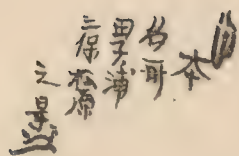 本
名所
田子浦
三保松原
之景